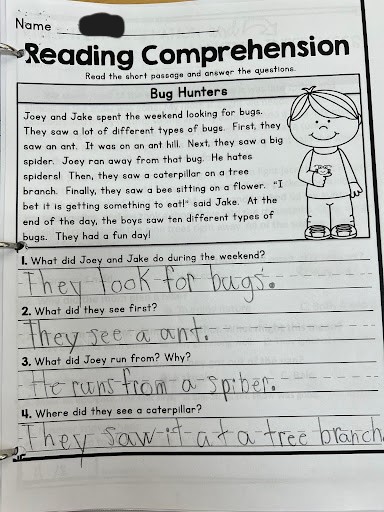 Name
Reading Comprehension
Read the short passage and answer the questions.
Bug Hunters
Joey and Jake spent the weekend looking for bugs.
They saw a lot of different types of bugs. First, they
saw an ant. It was on an ant hill. Next, they saw a big
spider. Joey ran away from that bug. He hates
spiders! Then, they saw a caterpillar on a tree
branch. Finally, they saw a bee sitting on a flower. "I
bet it is getting something to eat!" said Jake. At the
end of the day, the boys saw ten different types of
bugs. They had a fun day!
1. What did Joey and Jake do during the weekend?
They look for bugs.
2. What did they see first?
They see a ant.
3. What did Joey run from? Why?
He runs from a spiber.
4. Where did they see a caterpillar?
They saw it at a tree branch.